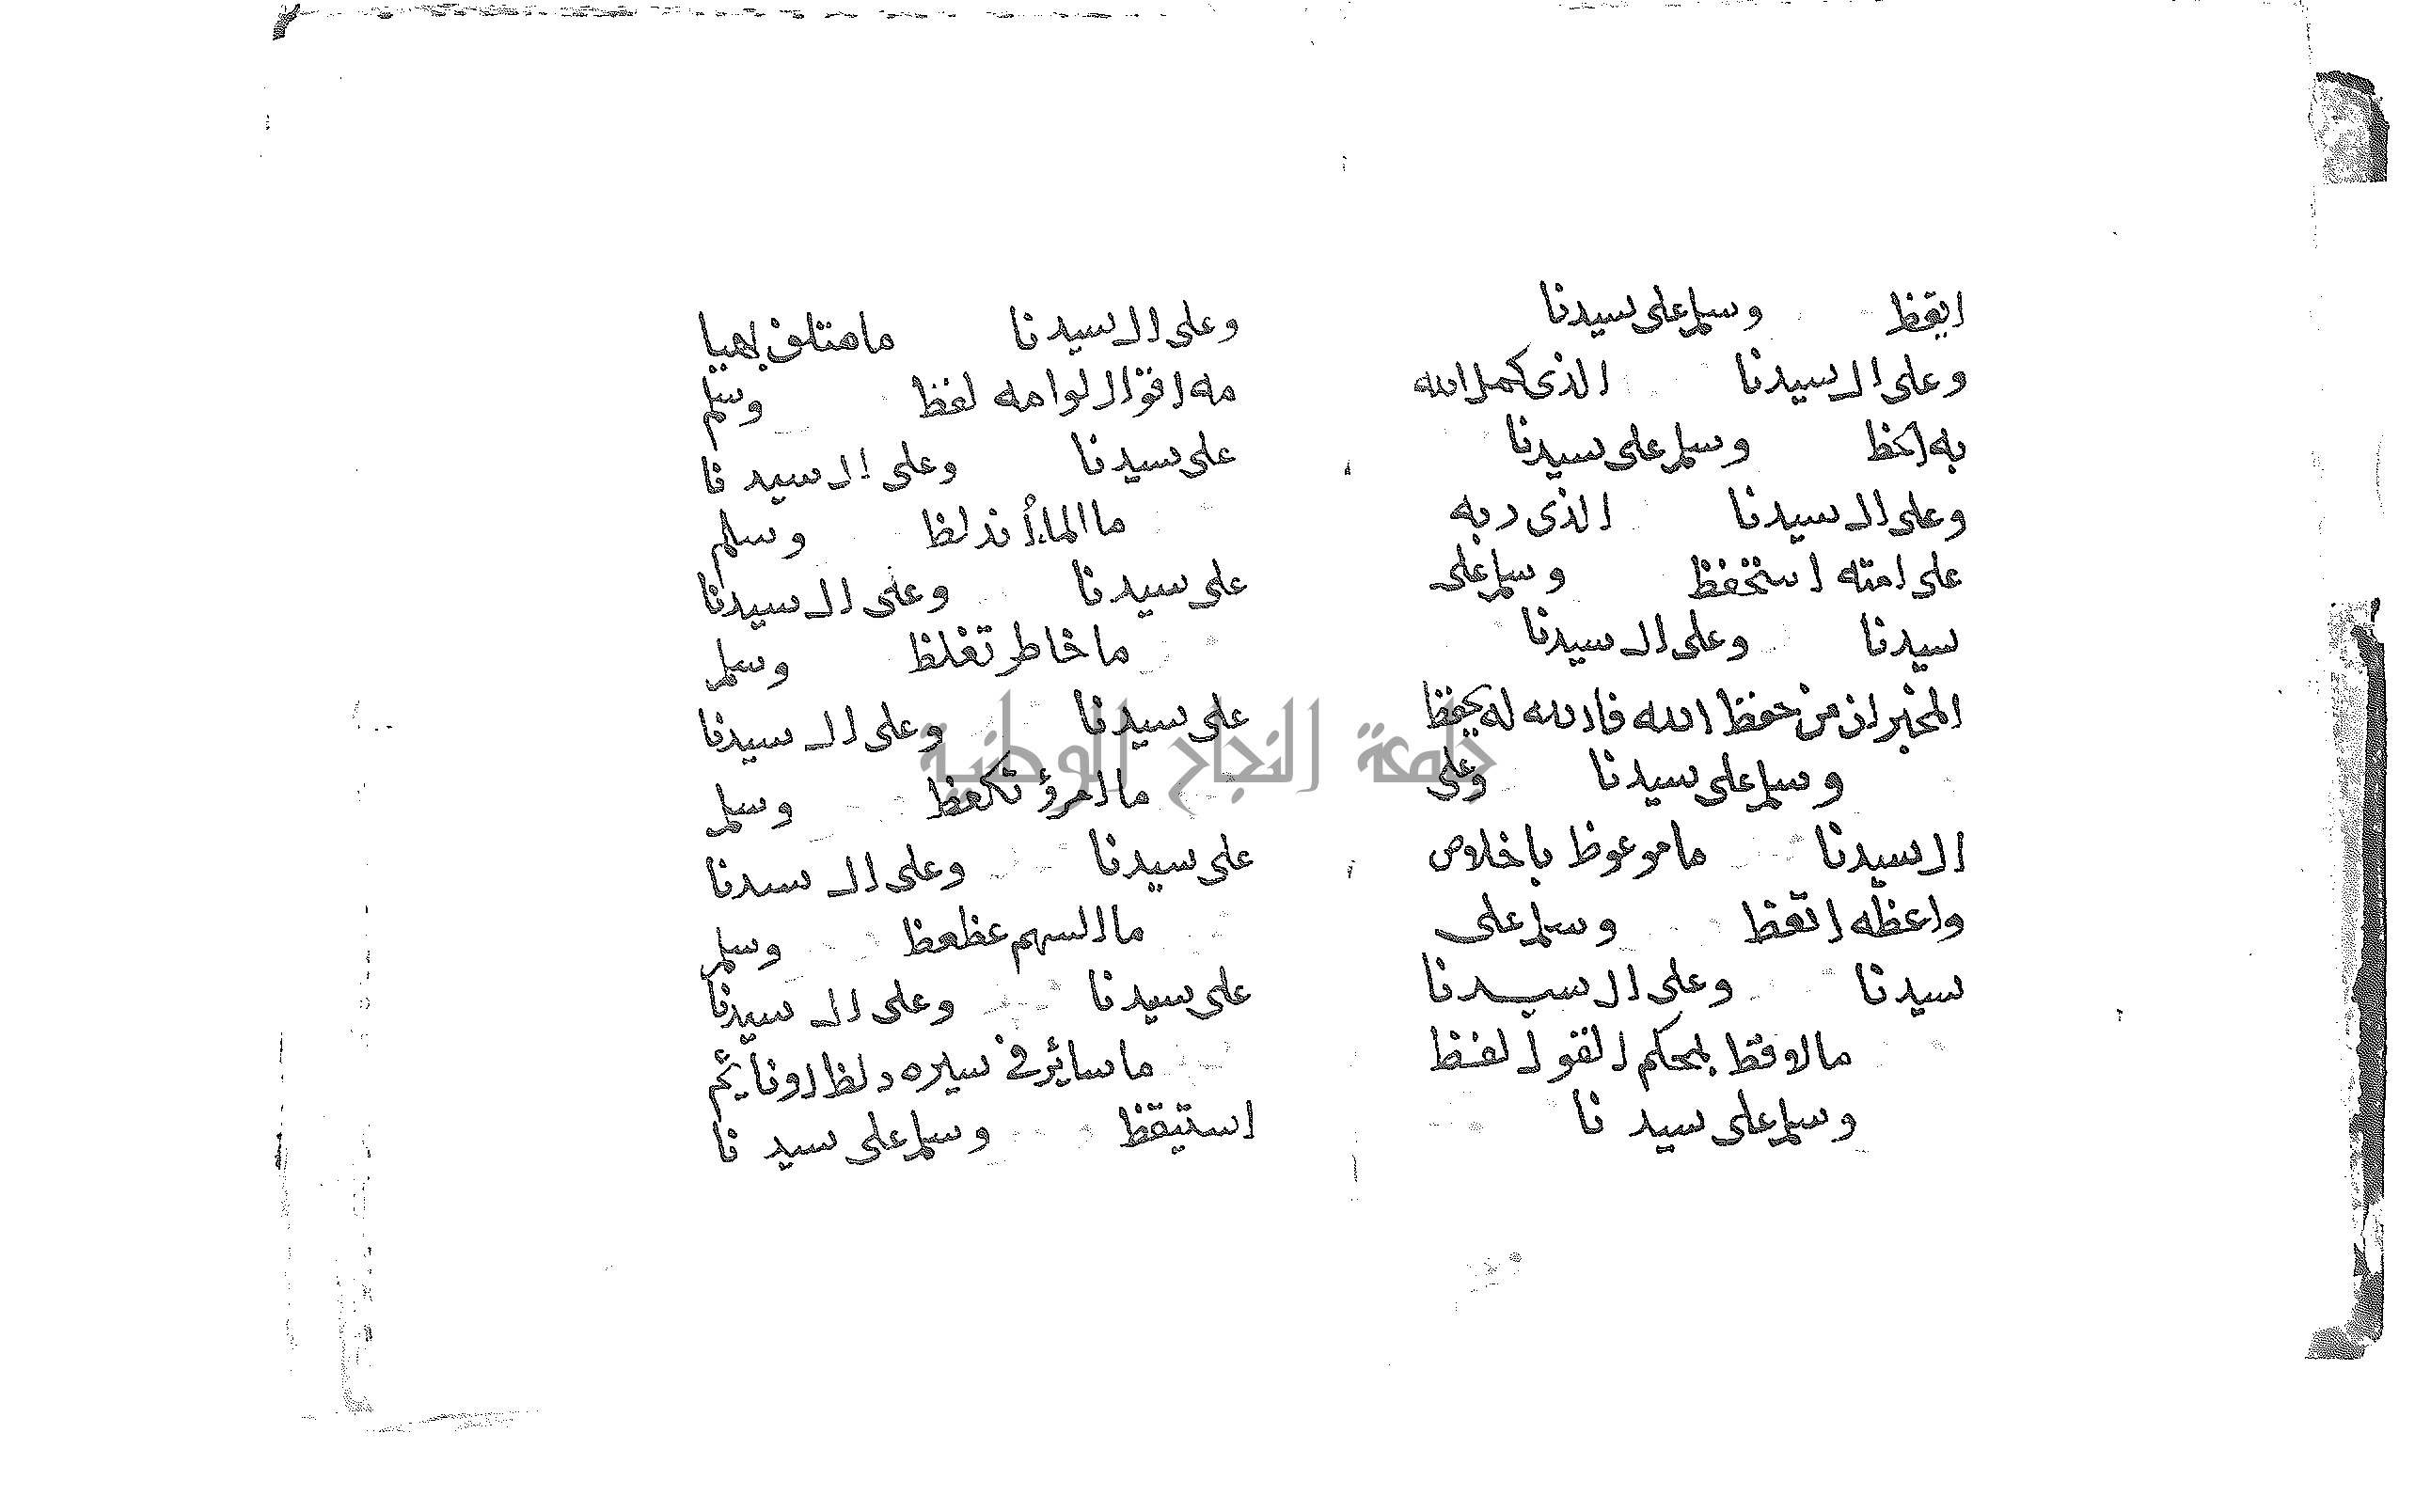 ايقظ وسلم على سيدنا
وعلى ال سيدنا الذى كمل الله
به احظ وسلم على سيدنا
وعلى ال سيدنا الذى ربه
على امته استحفظ وسلم على
سيدنا وعلى ال سيدنا
المخبر ان من حفظ الله فالله له يحفظ
وسلم على سيدنا وعلى
ال سيدنا ما موعوظ باخلاص
واعظه اتعظ وسلم على
سيدنا وعلى ال سيدنا
ما لافظ بمحكم القول لفظ
وسلم على سيدنا
وعلى ال سيدنا ما متلفـ
لفظ وسلم
على سيدنا وعلى ال سيدنا
ما الماء وسلم
على سيدنا وعلى ال سيدنا
ما خاطر تغلظ وسلم
على سيدنا وعلى ال سيدنا
ما امرؤ تكعظ وسلم
على سيدنا وعلى ال سيدنا
ما السهم عظعظ وسلم
على سيدنا وعلى ال سيدنا
ما سائر فى سيره دلظ او نايم
استيقظ وسلم على سيدنا
جامعة النجاح الوطنية